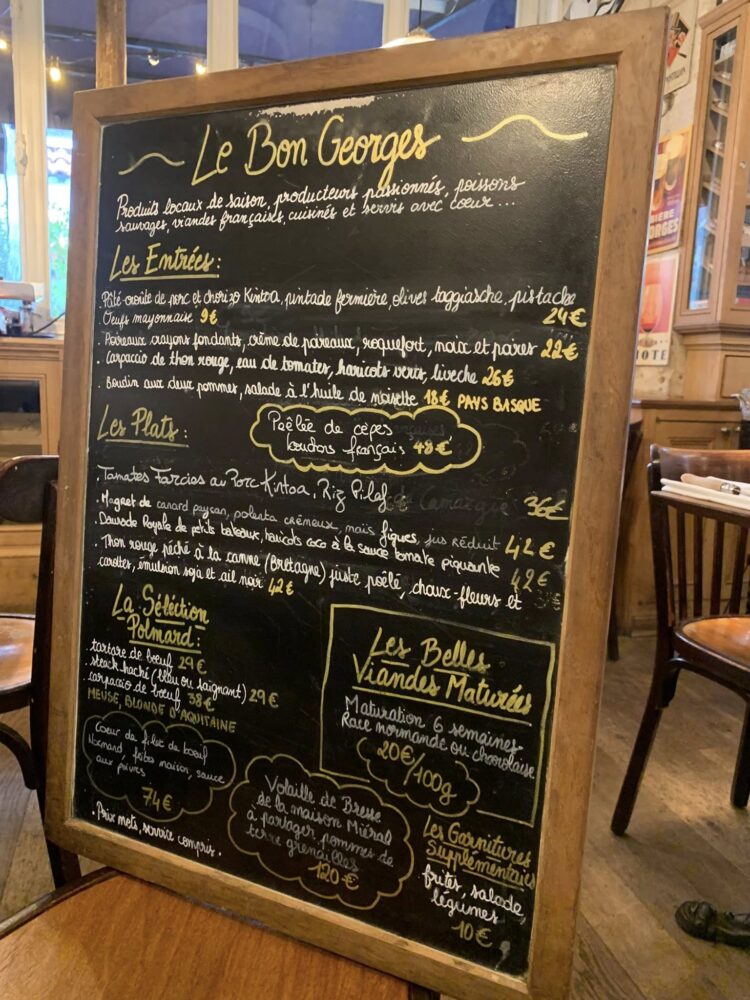 Le Bon Georges
Produits locaux de saison, producteurs passionnés, poissons
sauvages, viandes françaises, cuisinés et servis avec coeur ...
Les Entrées:
. Pâté-croûte de porc et chorizo Kintoa, pintade fermière, olives taggiasche, pistache
. Oeufs mayonnaise 9€ 24€
. Poireaux crayons fondants, crème de poireaux, roquefort, noix et poires 22€
. Carpaccio de thon rouge, eau de tomates, haricots verts, liveche 26€
. Boudin aux deux pommes, salade à l'huile de noisette 18€ PAYS BASQUE
Les Plats:
Poêlée de cèpes
boudons français 48€
. Tomates Farcies au Porc Kintoa, Riz Pilaf 36€
. Magret de canard paysan, polenta crémeux, maïs figues, jus réduit 42€
. Daurade Royale de petits bateaux, haricots coco à la sauce tomate piquante 42€
. Thon rouge pêché à la canne (Bretagne) juste poêlé, choux-fleurs et
carottes, émulsion soja et ail noir 42€
La Sélection
Polmard:
. tartare de boeuf 29€
. steak haché (bleu ou saignant) 29€
. carpaccio de boeuf 38€
MEUSE, BLONDE D'AQUITAINE
Coeur de filet de boeuf
Normand, frites maison, sauce
aux poivres
74€
. Prix nets, service compris.
Les Belles
Viandes Maturées
Maturation 6 semaines
Race normande ou charolaise
20€/100g
Volaille de Bresse
de la maison Miéral
à partager pommes de
terre grenailles
120€
Les Garnitures
Supplémentaires
frites, salade,
légumes
10€
BIERE